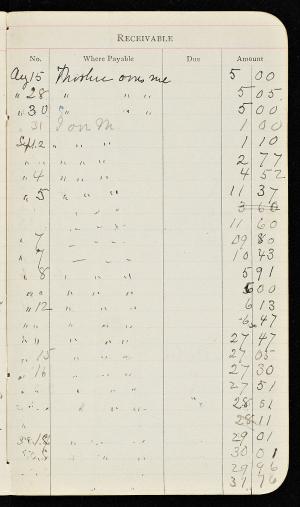 RECEIVABLE
No. Where Payable Due Amount
Aug 15 owes me 5 00
" 28 " " " 5 05
" 30 " " " 5 00
" 31 I on M 1 00
Sept 2 " " " 1 10
" " " " " 2 77
" 4 " " " 4 52
" 5 " " " 11 37
" " " 3 60
" " " 11 60
" 7 " " " 09 80
" 7 " " 10 43
" 8 " " " 5 91
" " " " " 6 00
" 12 " " " 6 13
" " " " 6 47
" " " " " 27 47
" 15 " " " 27 05
" 16 " " " 27 30
" " " " 27 51
" " " " 28 51
" " " " 28 11
18 " " " 29 01
" " " 30 01
29 96
31 76